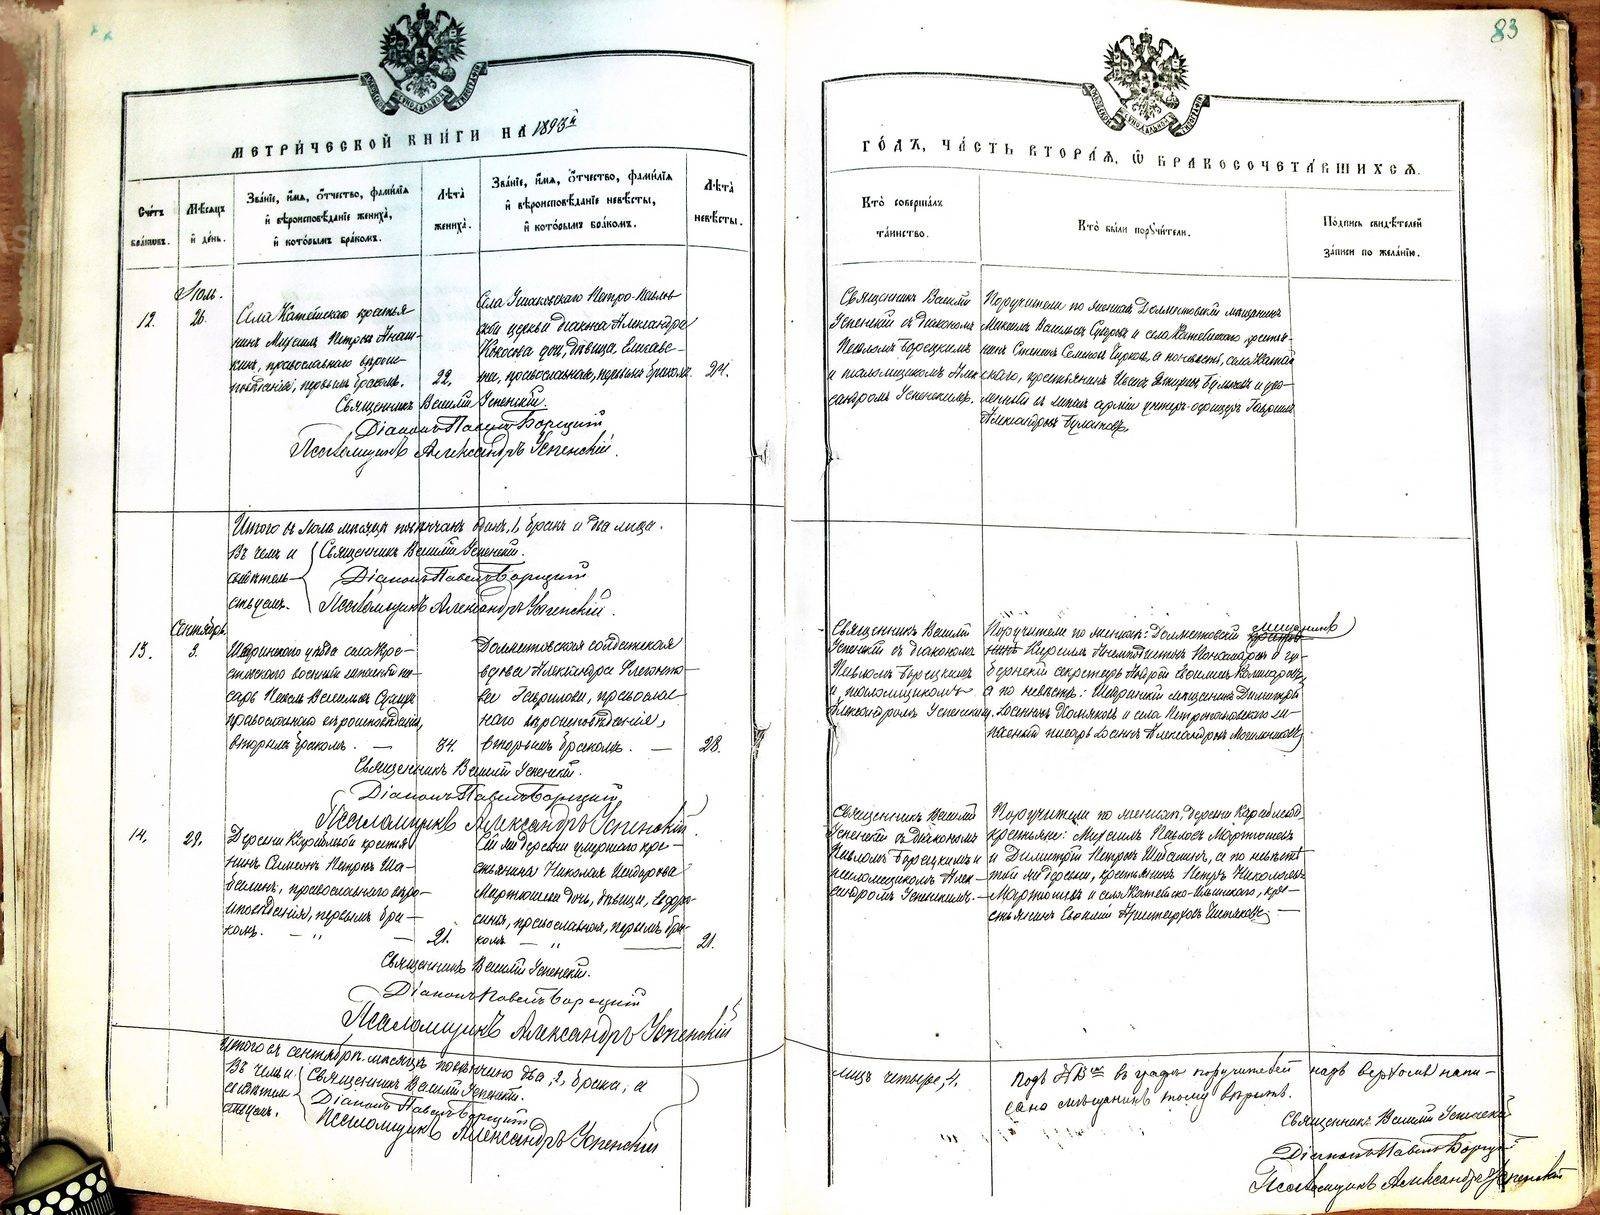 83
МЕТРИЧЕСКОЙ КНИГИ НА 1893й
ГОДЪ, ЧАСТЬ ВТОРАЯ, Ѿ БРАКОСОЧЕТАВШИХСЯ.
Счетъ браковъ.
Мѣсяцъ и день.
Званіе, имя, отчество, фамилія
и вѣроисповѣданіе жениха,
и которымъ бракомъ.
Лѣта жениха.
Званіе, имя, отчество, фамилія
и вѣроисповѣданіе невѣсты,
и которымъ бракомъ.
Лѣта невѣсты.
Кто совершалъ
таинство.
Кто были поручители.
Подпись свидѣтелей
записи по желанію.
Іюль.
12.
26.
Села Катайскаго крестья
нинъ Михаилъ Петровъ
православнаго вѣроис
повѣданія, первымъ бракомъ.
22.
Села Ушаковскаго Петро-Павлов
ской церкви діакона Александра
Кокосова дочь, дѣвица, Елисаве-
та, православная, первымъ бракомъ.
24.
Священникъ Василій
Успенскій съ діакономъ
Павломъ Борецкимъ
и псаломщикомъ Алек
сандромъ Успенскимъ.
Поручители по женихѣ Долматовскій мѣщанинъ
Михаилъ Васильевъ и села Катайскаго кресть-
нинъ а по невѣстѣ, села Катай
скаго, крестьянинъ Иванъ и уво-
унтеръ-офицеръ Гавріилъ
Александровъ
Священникъ Василій Успенскій.
Діаконъ Павелъ Борецкій
Псаломщикъ Александръ Успенскій.
Итого въ Іюлѣ мѣсяцѣ повѣнчанъ одинъ, 1, бракъ и два лица.
Въ чемъ и
свѣтель
ствуемъ.
Священникъ Василій Успенскій.
Діаконъ Павелъ Борецкій
Псаломщикъ Александръ Успенскій.
Сентябрь.
13.
3.
Шадринскаго уѣзда села Кре-
стовскаго военный писарь
Павелъ Васильевъ
православнаго вѣроисповѣданія,
вторымъ бракомъ. —
34.
Долматовская солдатская
вдова Александра
Гаврилова, православ
наго вѣроисповѣданія,
вторымъ бракомъ. —
28.
Священникъ Василій
Успенскій съ діакономъ
Павломъ Борецкимъ
и псаломщикомъ
Александромъ Успенскимъ.
Поручители по женихѣ: Долматовскій мѣщанинъ
Кириллъ Пономаревъ и гу-
бернскій секретарь Андрей
а по невѣстѣ: Шадринскій мѣщанинъ Димитрій
и села Петропавловскаго
писарь Іоаннъ Александровъ
Священникъ Василій Успенскій.
Діаконъ Павелъ Борецкій
Псаломщикъ Александръ Успенскій.
14.
29.
Деревни крестья
нинъ Симеонъ Петровъ Ша
балинъ, православнаго вѣро-
исповѣданія, первымъ бра-
комъ. — „ —
21.
Той же деревни умершаго кре-
стьянина Николая
Мартюшева дочь, дѣвица, Ѳеодо-
сія, православная, первымъ бра-
комъ — „
21.
Священникъ Василій
Успенскій съ діакономъ
Павломъ Борецкимъ и
псаломщикомъ Алек-
сандромъ Успенскимъ. —
Поручители по женихѣ, деревни
крестьяне: Михаилъ Павловъ Мартюшевъ
и Димитрій Петровъ Шабалинъ, а по невѣстѣ
той же деревни, крестьянинъ Петръ Николаевъ
Мартюшевъ и села Катайско-Ильинскаго, кре-
стьянинъ
Священникъ Василій Успенскій.
Діаконъ Павелъ Борецкій
Псаломщикъ Александръ Успенскій
Итого въ сентябрѣ мѣсяцѣ повѣнчано два, 2, брака, а
лицъ четыре, 4.
Въ чемъ и
свѣдѣтель
ствуемъ.
Священникъ Василій Успенскій.
Діаконъ Павелъ Борецкій
Псаломщикъ Александръ Успенскій
въ графѣ поручителей надъ верхомъ напи-
сано мѣщанинъ тому вѣрить.
Священникъ Василій Успенскій
Діаконъ Павелъ Борецкій
Псаломщикъ Александръ Успенскій